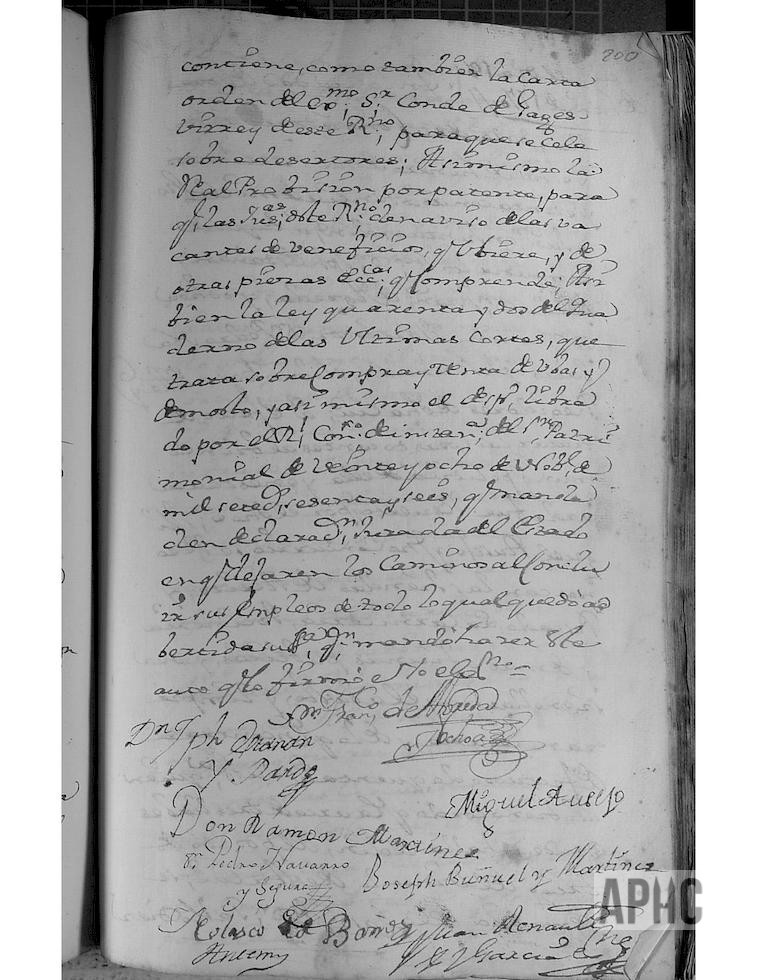 200
contiene, como tambien la Carta
orden del Exmo. Sr. Conde de Gages
Virrey de este Rno, para que se cele
sobre desertores; Asimismo la
Real Probision por patente, para
q. las Jus.as de este Rno. den aviso de las va
cantes de veneficios, q. Ubiere, y de
otras piezas eccas. q. Comprende; Asi
bien la ley quarenta y dos del qua
derno de las Ultimas Cortes, que
trata sobre Compra y Venta de Ubas y
de mosto, y asi mismo el desp. libra
do por el Rl. Con. de del Patri
monial de Veinte y ocho de Nobe. de
mil setecs. sesenta y seis, q. manda
den declaraon. Jurada del Estado
en q. dejaren los Caminos al Conclu
ir sus Empleos de todo lo qual quedó ad
bertida su mandó hazer Este
auto q. lo firmó e Yo el Sno =
Franco de
Ochoa
Dn Jph
y Pardo
Miguel Ausejo
Don Ramon Martinez
Dn Pedro Navarro
y Segura
Joseph Buñuel y Martinez
Nolasco
Antemi
Juan Renault
y Garcia
APHC